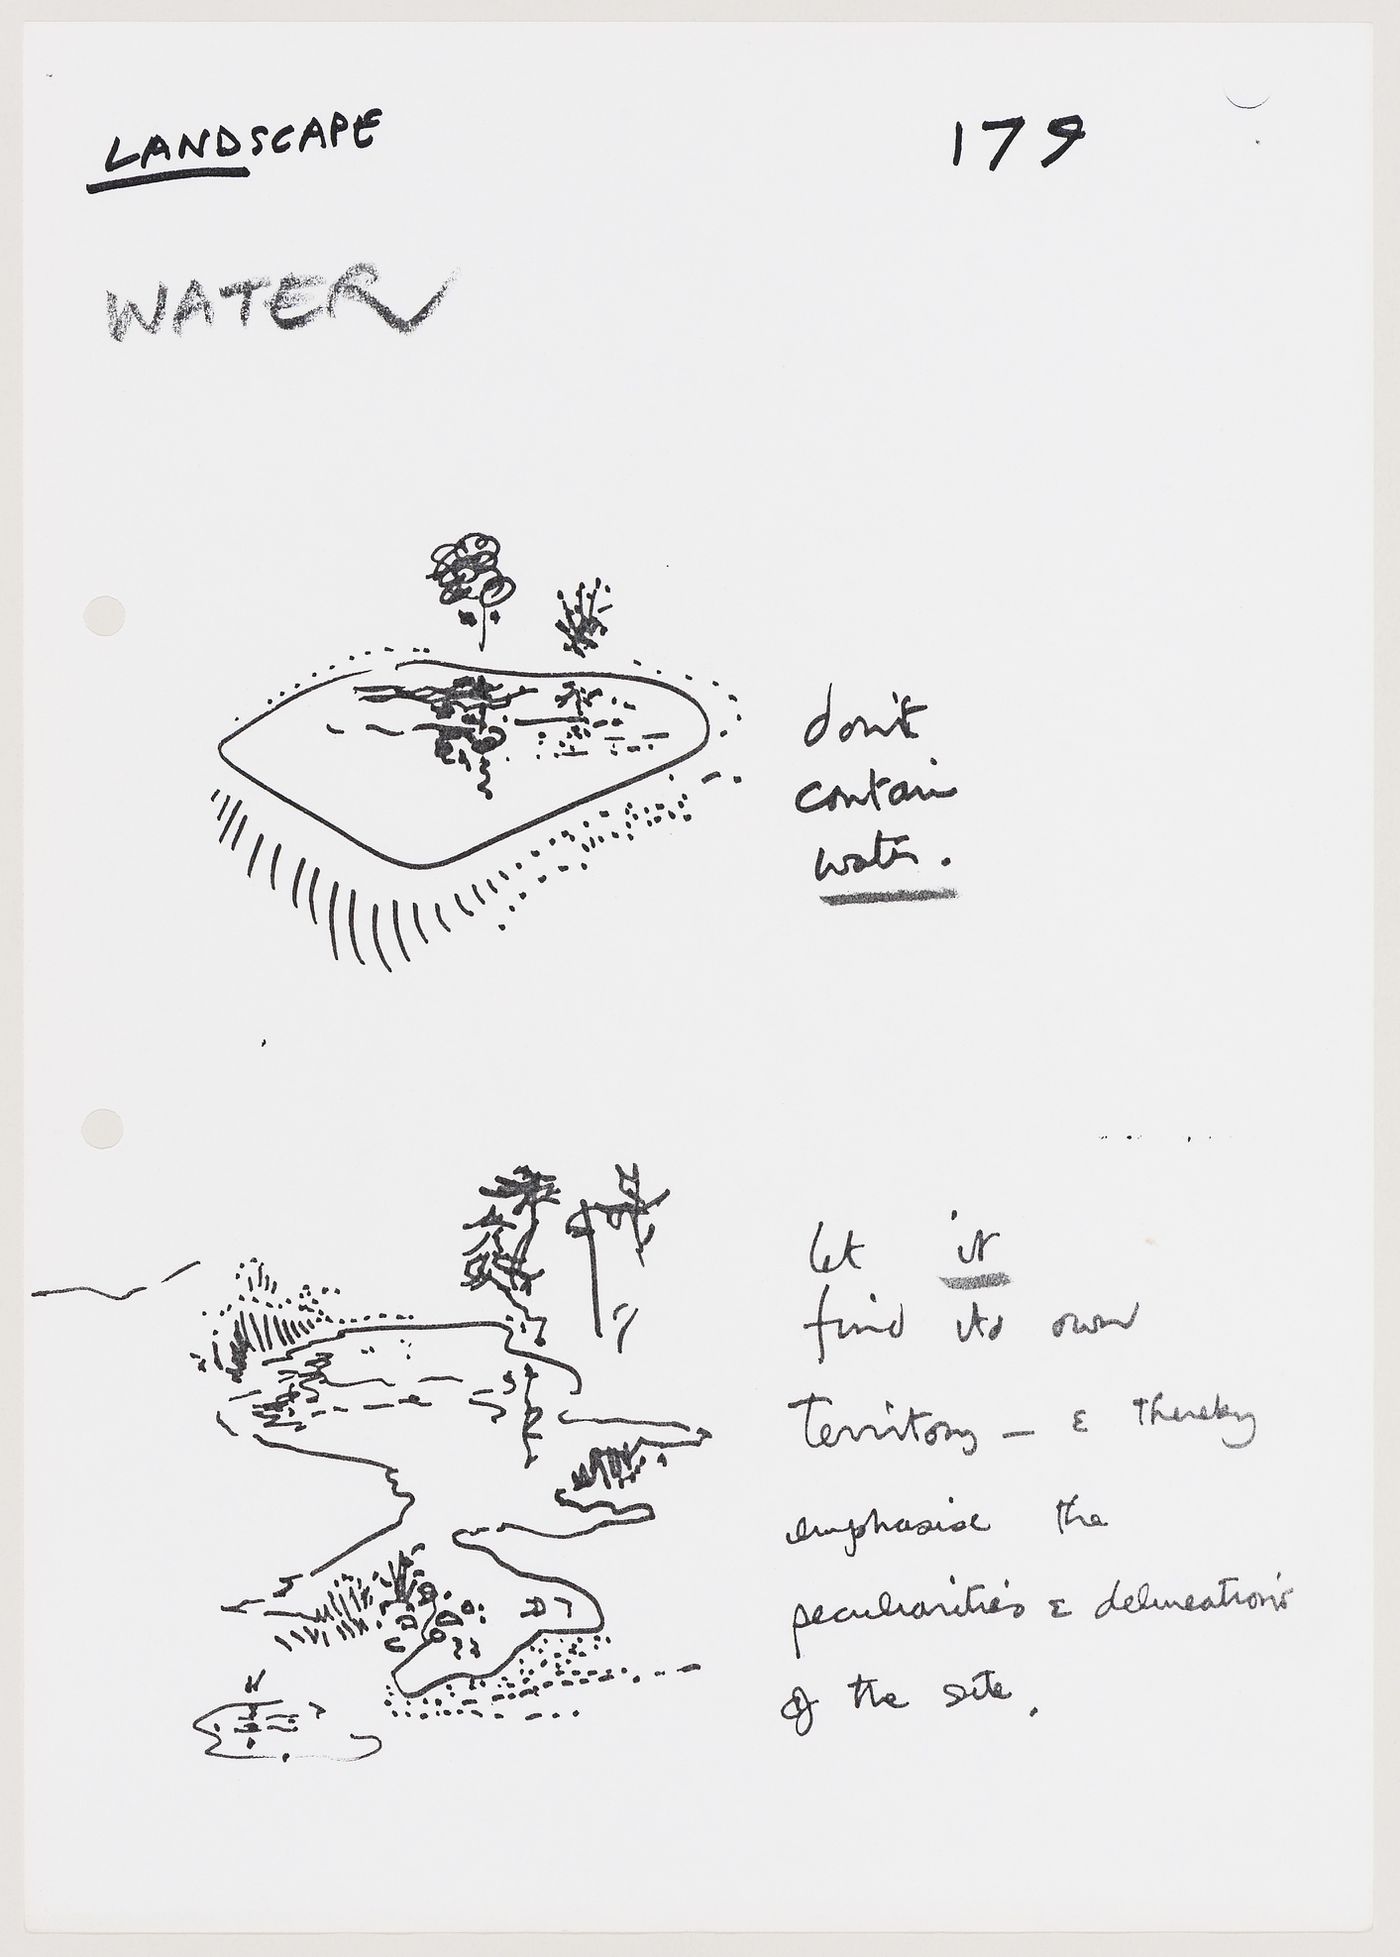 LANDSCAPE 179
WATER
don't
contain
water.
let it
find its own
territory — & thereby
emphasise the
peculiarities & delineations
of the site.